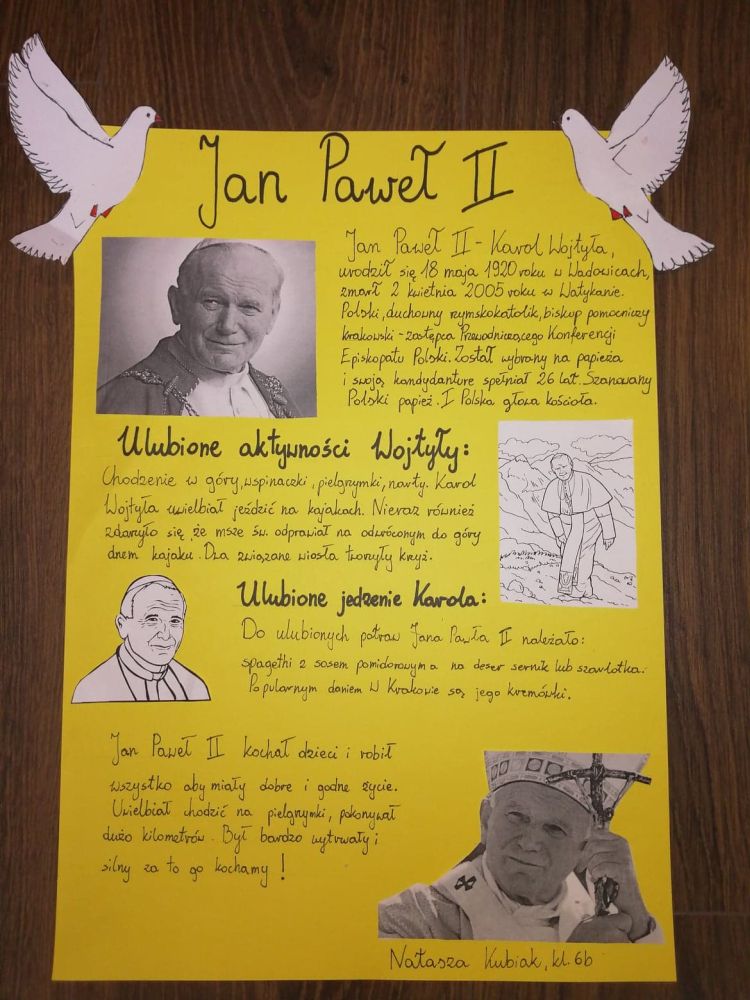 Jan Paweł II
Jan Paweł II - Karol Wojtyła,
urodził się 18 maja 1920 roku w Wadowicach,
zmarł 2 kwietnia 2005 roku w Watykanie.
Polski, duchowny rzymskokatolik, biskup pomocniczy
krakowski - zastępca Przewodniczącego Konferencji
Episkopatu Polski. Został wybrany na papieża
i swoją kandydanture spełniał 26 lat. Szanowany
Polski papież. I Polska głowa kościoła.
Ulubione aktywności Wojtyły:
Chodzenie w góry, wspinaczki, pielgrzymki, narty. Karol
Wojtyła uwielbiał jeździć na kajakach. Nieraz również
zdarzyło się że msze św. odprawiał na odwróconym do góry
dnem kajaku. Dwa związane wiosła tworzyły krzyż.
Ulubione jedzenie Karola:
Do ulubionych potraw Jana Pawła II należało:
spagethi z sosem pomidorowym a na deser sernik lub szarlotka.
Popularnym daniem W Krakowie są jego kremówki.
Jan Paweł II kochał dzieci i robił
wszystko aby miały dobre i godne życie.
Uwielbiał chodzić na pielgrzymki, pokonywał
dużo kilometrów. Był bardzo wytrwały i
silny za to go kochamy!
Natasza Kubiak, kl. 6b